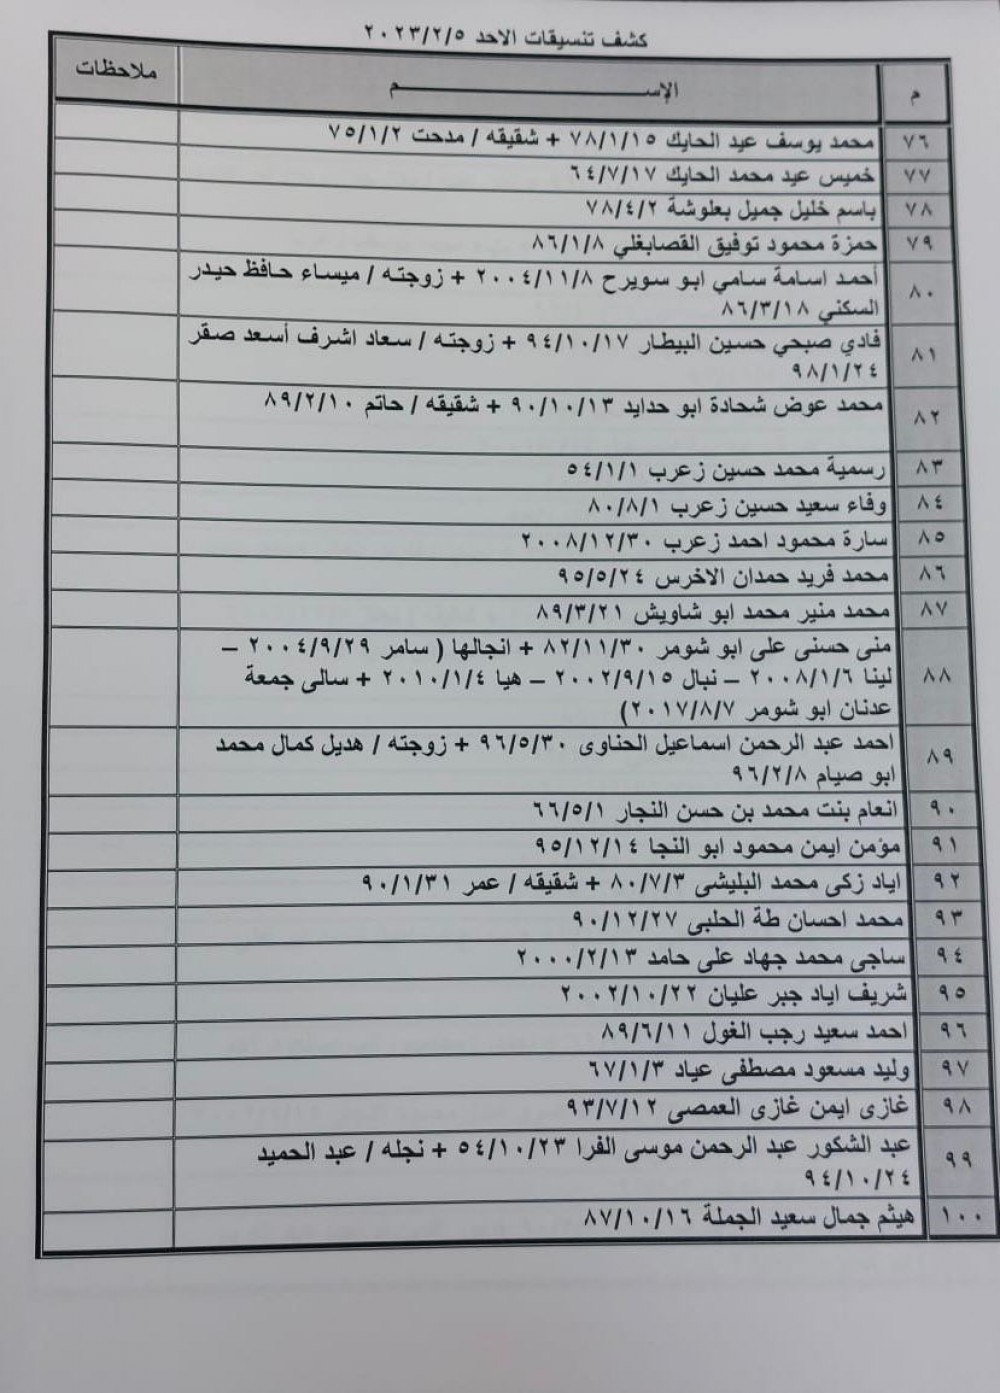 كشف تنسيقات الاحد ٢٠٢٣/٢/٥
م الإســـــــــم ملاحظات
٧٦ محمد يوسف عيد الحايك ٧٨/١/١٥ + شقيقه / مدحت ٧٥/١/٢
٧٧ خميس عيد محمد الحايك ٦٤/٧/١٧
٧٨ باسم خليل جميل بعلوشة ٧٨/٤/٢
٧٩ حمزة محمود توفيق القصابغلي ٨٦/١/٨
٨٠ أحمد اسامة سامي ابو سويرح ٢٠٠٤/١١/٨ + زوجته / ميساء حافظ حيدر
السكني ٨٦/٣/١٨
٨١ فادي صبحي حسين البيطار ٩٤/١٠/١٧ + زوجته / سعاد اشرف أسعد صقر
٩٨/١/٢٤
٨٢ محمد عوض شحادة ابو حدايد ٩٠/١٠/١٣ + شقيقه / حاتم ٨٩/٢/١٠
٨٣ رسمية محمد حسين زعرب ٥٤/١/١
٨٤ وفاء سعيد حسين زعرب ٨٠/٨/١
٨٥ سارة محمود احمد زعرب ٢٠٠٨/١٢/٣٠
٨٦ محمد فريد حمدان الاخرس ٩٥/٥/٢٤
٨٧ محمد منير محمد ابو شاويش ٨٩/٣/٢١
٨٨ منى حسنى على ابو شومر ٨٢/١١/٣٠ + انجالها ( سامر ٢٠٠٤/٩/٢٩ –
لينا ٢٠٠٨/١/٦ – نبال ٢٠٠٢/٩/١٥ – هيا ٢٠١٠/١/٤ + سالى جمعة
عدنان ابو شومر ٢٠١٧/٨/٧)
٨٩ احمد عبد الرحمن اسماعيل الحناوى ٩٦/٥/٣٠ + زوجته / هديل كمال محمد
ابو صيام ٩٦/٢/٨
٩٠ انعام بنت محمد بن حسن النجار ٦٦/٥/١
٩١ مؤمن ايمن محمود ابو النجا ٩٥/١٢/١٤
٩٢ اياد زكى محمد البليشى ٨٠/٧/٣ + شقيقه / عمر ٩٠/١/٣١
٩٣ محمد احسان طة الحلبى ٩٠/١٢/٢٧
٩٤ ساجى محمد جهاد على حامد ٢٠٠٠/٢/١٣
٩٥ شريف اياد جبر عليان ٢٠٠٢/١٠/٢٢
٩٦ احمد سعيد رجب الغول ٨٩/٦/١١
٩٧ وليد مسعود مصطفى عياد ٦٧/١/٣
٩٨ غازى ايمن غازى العمصى ٩٣/٧/١٢
٩٩ عبد الشكور عبد الرحمن موسى الفرا ٥٤/١٠/٢٣ + نجله / عبد الحميد
٩٤/١٠/٢٤
١٠٠ هيثم جمال سعيد الجملة ٨٧/١٠/١٦